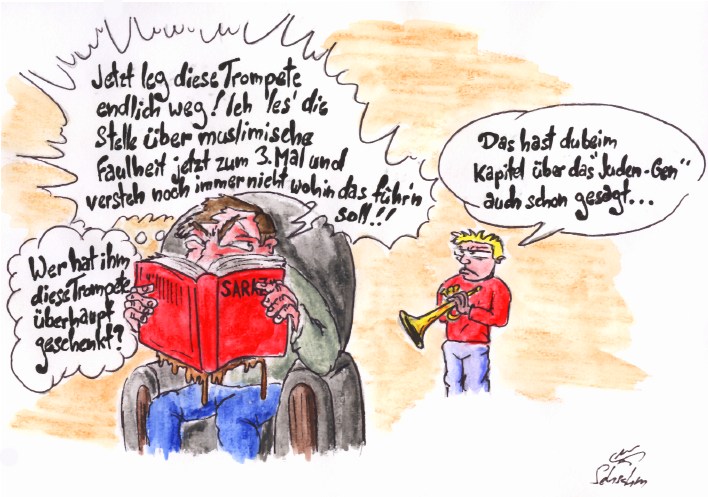 Jetzt leg diese Trompete
endlich weg! Ich les' die
Stelle über muslimische
Faulheit jetzt zum 3. Mal und
versteh noch immer nicht wohin das führ'n
soll!!!
Das hast du beim
Kapitel über das "Juden-Gen"
auch schon gesagt...
Wer hat ihm
diese Trompete
überhaupt
geschenkt?
SARAZ